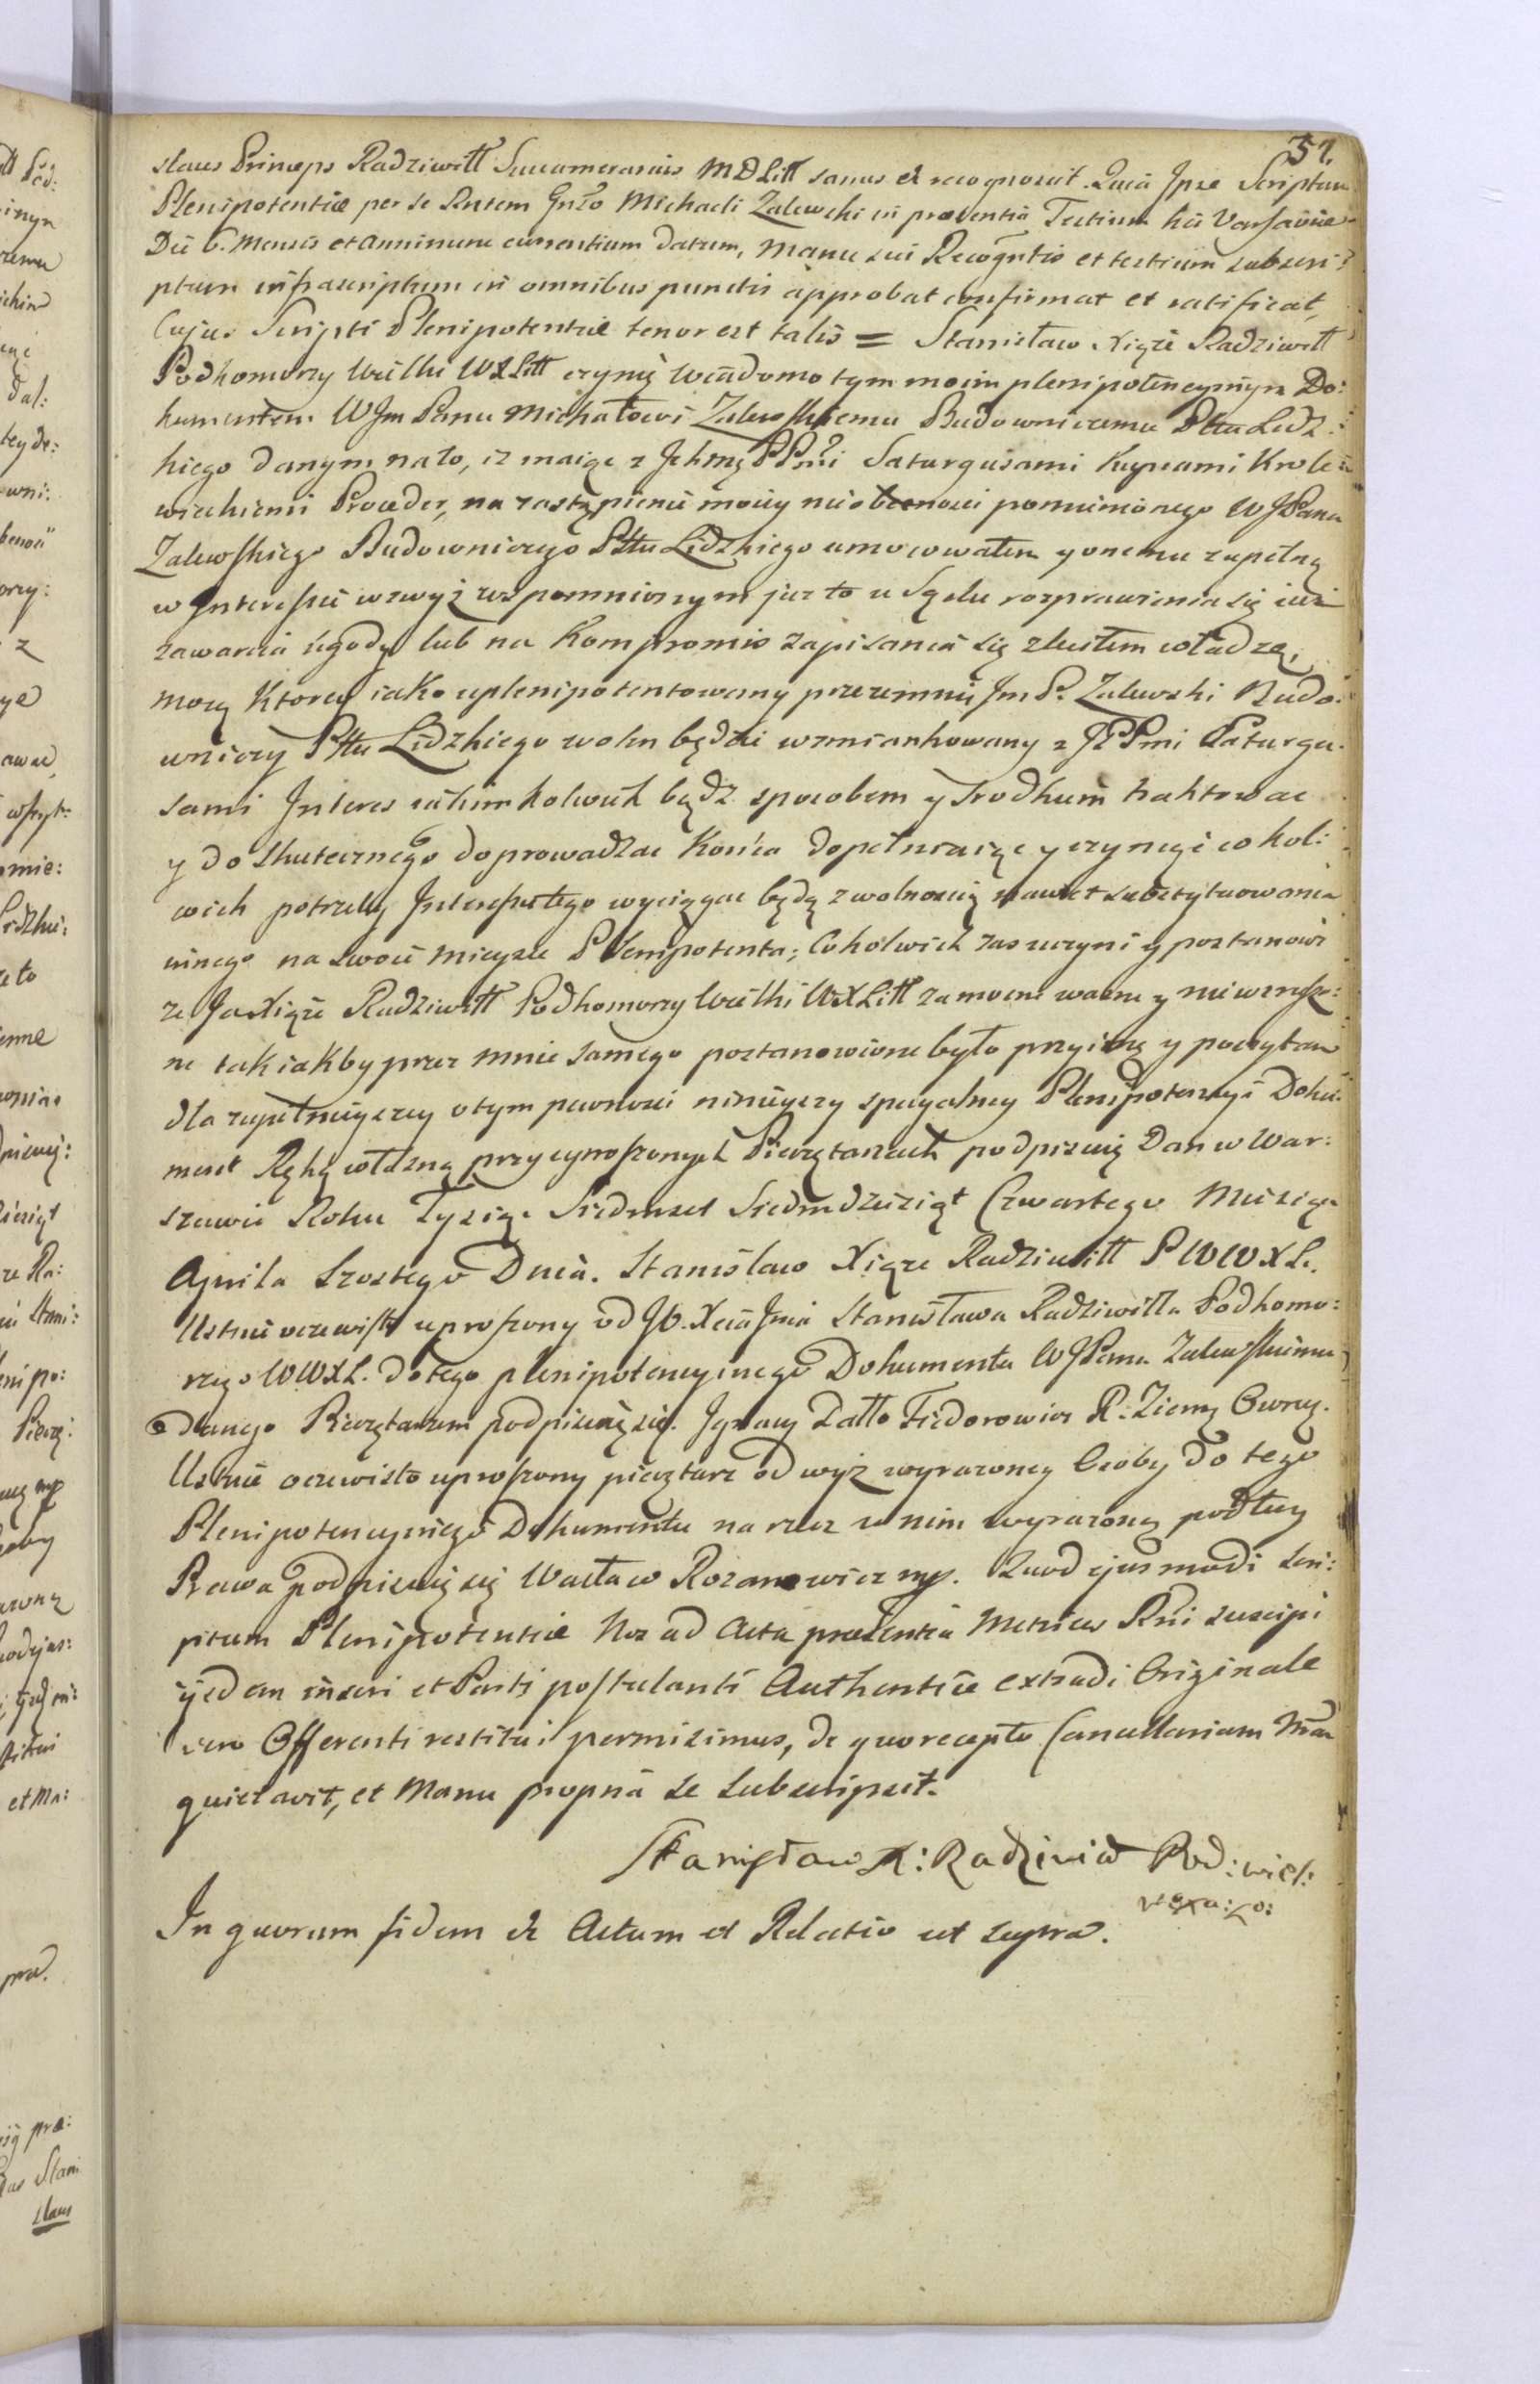 51.
slaus Princeps Radziwiłł Succamerarius M D Litt sanus et recognovit. Quia Ipse Scriptum
Plenipotentiæ per se Rntem Gnso Michaeli Zalewski in præsentia Testium hic Varsaviæ
Die 6. Mensis et Anni nunc currentium datum, manu sui Recogntis et testium subscri:
ptum infrascriptum in omnibus punctis approbat confirmat et ratificat,
Cujus Scripti Plenipotentiæ tenor est talis = Stanisław Xiąże Radziwiłł
Podkomorzy Wielki WXLitt czynię wiadomo tym moim plenipotencyinym Do:
kumentem WJm Panu Michałowi Zalewskiemu Budowniczemu Pttu Lidz:
kiego danym na to, iz maiąc z Ichmę PPmi Saturgusami Kupcami Krole:
wieckiemi Proceder, na zastąpienie moiey nieobecnosci pomienionego WJPana
Zalewskiego Budowniczego Pttu Lidzkiego umocowałem y onemu zupełną
w Interessie wzwyż wspomnionym juz to u Sądu rozprawienia się iuż
zawarcia ugody lub na Kompromis zapisania się zleciłem władzę,
mocą ktorey iako uplenipotentowany przezemnie Jm P. Zalewski Budo:
wniczy Pttu Lidzkiego wolen będzie wzmiankowany z JPPmi Saturgu:
sami Interes iakimkolwiek bądź sposobem y srodkiem traktowac
y do skutecznego doprowadzac Końca dopełniaiąc y czyniąc cokol:
wiek potrzeby Interessu tego wyciągac będą z wolnoscią nawet substytuowania
innego na swoie mieysce Plenipotenta; Cokolwiek zas uczyni y postanowi
ze Ja Xiąże Radziwiłł Podkomorzy Wielki WXLitt za mocne wazne y niewzruszo:
ne tak iakby przez mnie samego postanowione było przyimę y poczytam
dla zupełnieyszey o tym pewnosci ninieyszy specyalney Plenipotencyi Doku:
ment Ręką własną przy uproszonych Pieczętarzach podpisuię Dan w War:
szawie Roku Tysiąc Siedmset Siedmdziesiąt Czwartego Miesiąca
Aprila Szostego Dnia. Stanisław Xiąze Radziwiłł P W W X L.
Ustnie oczewisto uproszony od JO. Xcia Jmci Stanisława Radziwiłła Podkomo:
rzego WWXL. do tego plenipotencyinego Dokumentu WJPanu Zalewskiemu
danego Pieczętarzem podpisuię się. Ignacy Fiedorowicz R. Ziemz Owruz.
Ustnie oczewisto uproszony pieczętarz od wyż wyrazoney Osoby do tego
Plenipotencyinego Dokumentu na rzecz w nim wyrazoną podług
Prawa podpisuię się Wacław Rozanowicz mp. Quod ejusmodi Scri:
ptum Plenipotentiæ Nos ad Acta præsentia Metrices Rni suscipi
ijsdem inseri et Parti postulanti Authentice extradi Originale
vero Offerenti restitui permisimus, de quo recepto Cancellariam Nram
quietavit, et Manu propria se subscripsit.
Stanisław X: Radziwił Pod: wiel:
In quorum fidem &c Actum et Relatio ut supra.